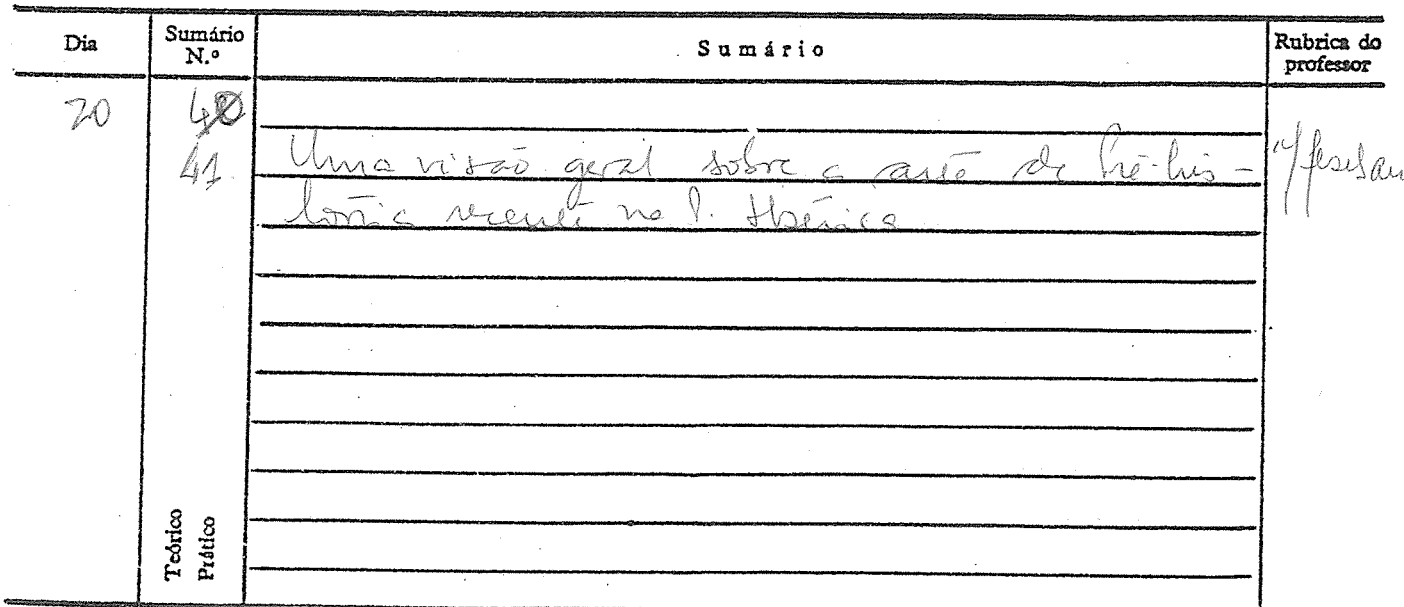 Dia Sumário N.º Sumário Rubrica do professor
20 40
41 Uma visão geral sobre a arte da Pré-his-
tória recente na P. Ibérica.
Teórico
Prático